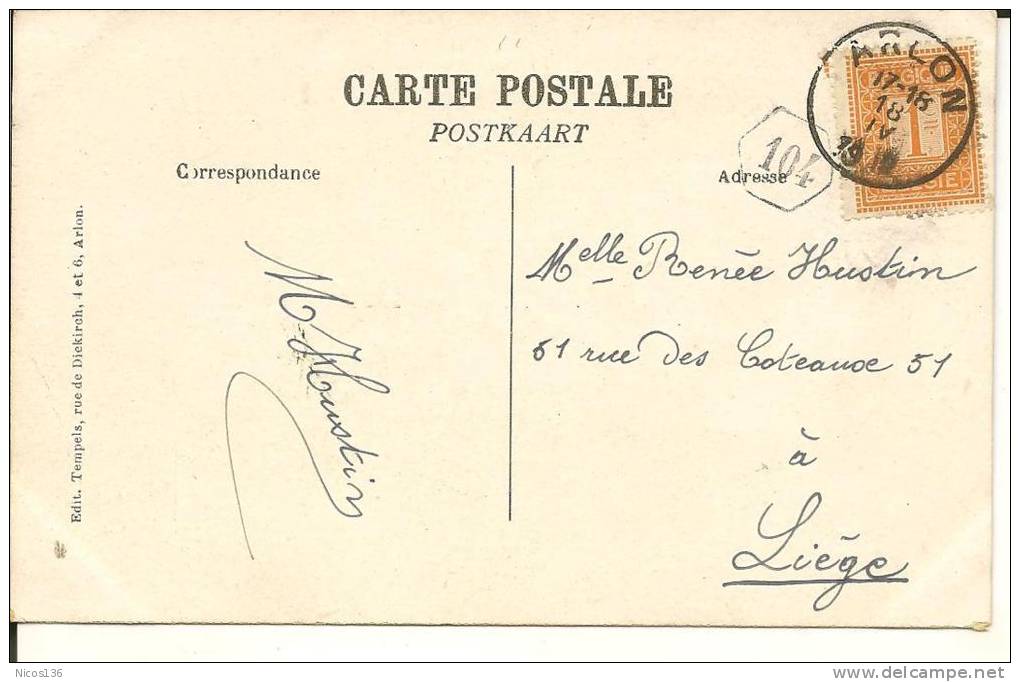 CARTE POSTALE
POSTKAART
Correspondance
Adresse
104
ARLON
17-18
18
IV
1
BELGIË
Edit. Tempels, rue de Diekirch, 4 et 6, Arlon.
M Hustin
Melle Renée Hustin
51 rue des Coteaux 51
à
Liège
Nicos136
www.delcampe.net